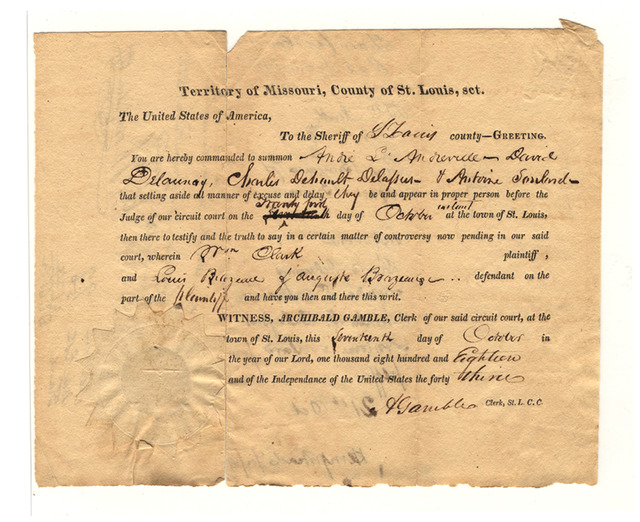 Territory of Missouri, County of St. Louis, sct.
The United States of America,
To the Sheriff of St Louis county—GREETING.
You are hereby commanded to summon André L. Andreville David
Delaunay, Charles Dehault Delassus & Antoine Soulard
that setting aside all manner of excuse and delay they be and appear in proper person before the
Judge of our circuit court on the twenty first day of October instant at the town of St. Louis,
then there to testify and the truth to say in a certain matter of controversy now pending in our said
court, wherein Wm Clark plaintiff,
and Louis Brazeau & Auguste Brazeau defendant on the
part of the Plaintiff and have you then and there this writ.
WITNESS, ARCHIBALD GAMBLE, Clerk of our said circuit court, at the
town of St. Louis, this seventeenth day of October in
the year of our Lord, one thousand eight hundred and Eighteen
and of the Independence of the United States the forty third
A Gamble Clerk, St. L. C. C.